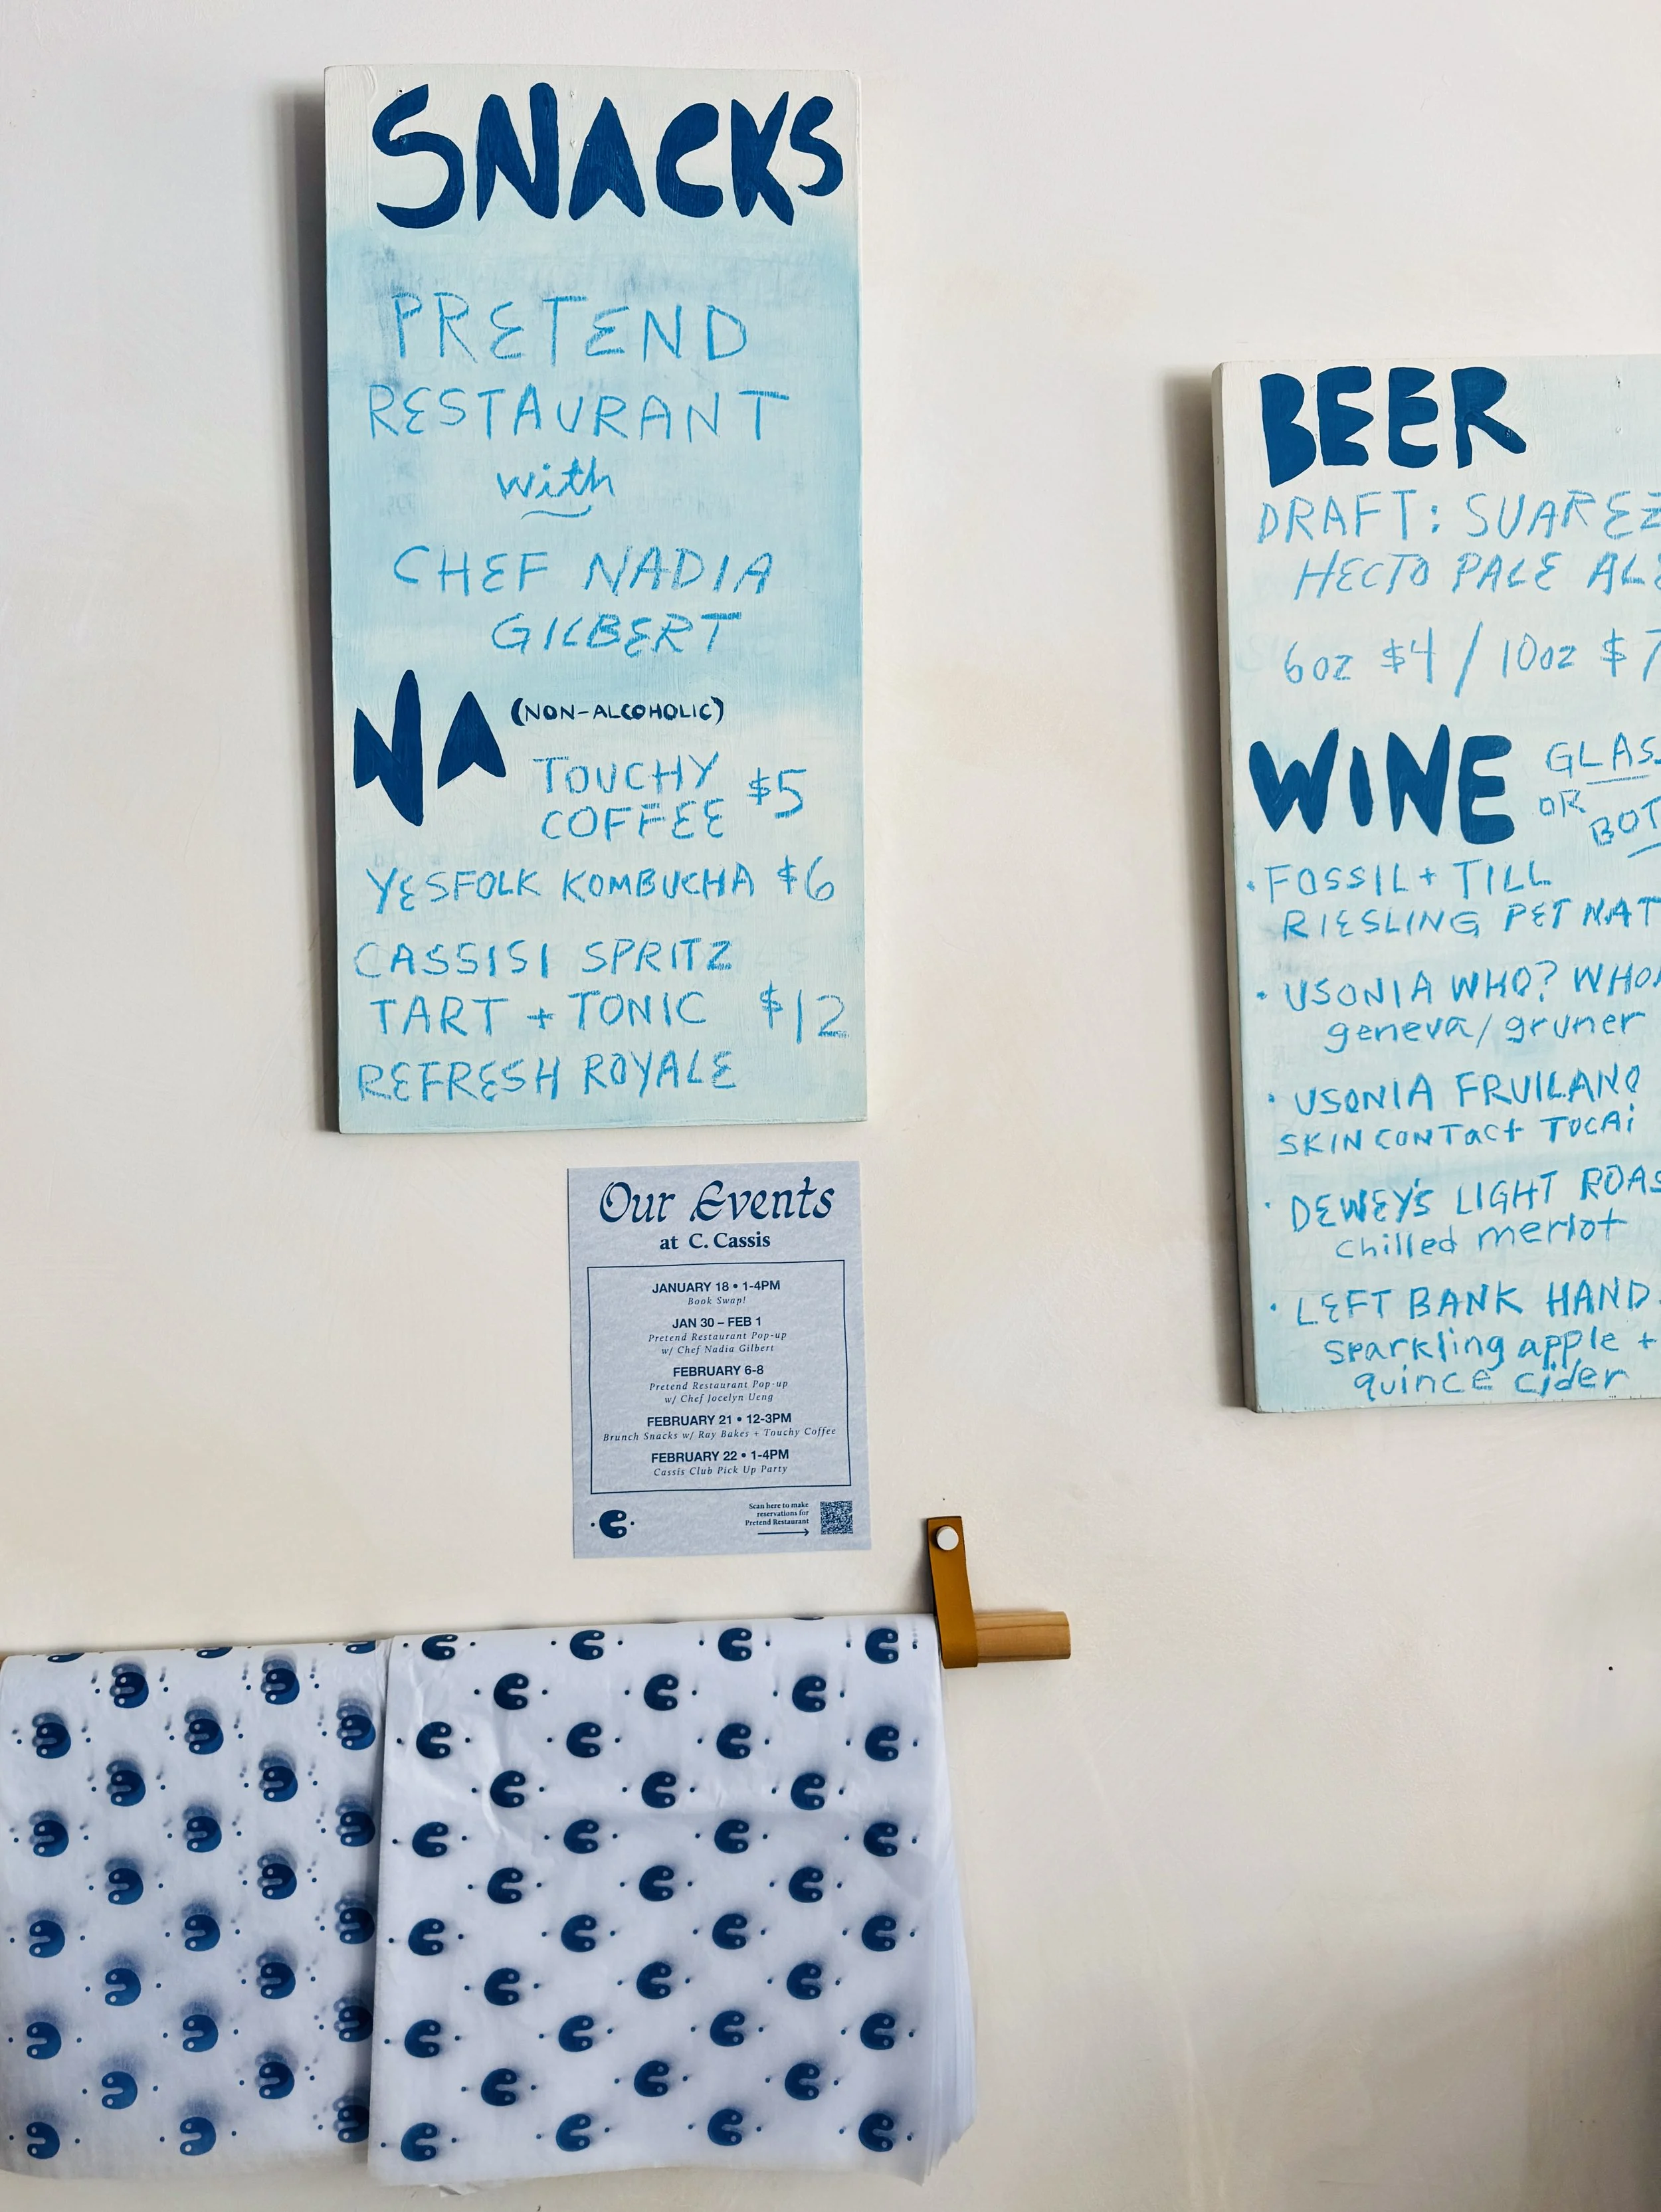 SNACKS
PRETEND
RESTAURANT
with
CHEF NADIA
GILBERT
NA (NON-ALCOHOLIC)
TOUCHY
COFFEE $5
YESFOLK KOMBUCHA $6
CASSISI SPRITZ
TART + TONIC $12
REFRESH ROYALE
Our Events
at C. Cassis
JANUARY 18 • 1-4PM
Book Swap!
JAN 30 – FEB 1
Pretend Restaurant Pop-up
w/ Chef Nadia Gilbert
FEBRUARY 6-8
Pretend Restaurant Pop-up
w/ Chef Jocelyn Ueng
FEBRUARY 21 • 12-3PM
Brunch Snacks w/ Ray Bakes + Touchy Coffee
FEBRUARY 22 • 1-4PM
Cassis Club Pick Up Party
Scan here to make
reservations for
Pretend Restaurant
BEER
DRAFT: SUAREZ
HECTO PALE ALE
6oz $4 / 10oz $7
WINE GLAS
OR
BOT
• FOSSIL + TILL
RIESLING PET NAT
• USONIA WHO? WHO
geneva/gruner
• USONIA FRUILANO
SKIN CONTACT TOCAi
• DEWEY'S LIGHT ROAS
chilled merlot
• LEFT BANK HAND
sparkling apple +
quince cider